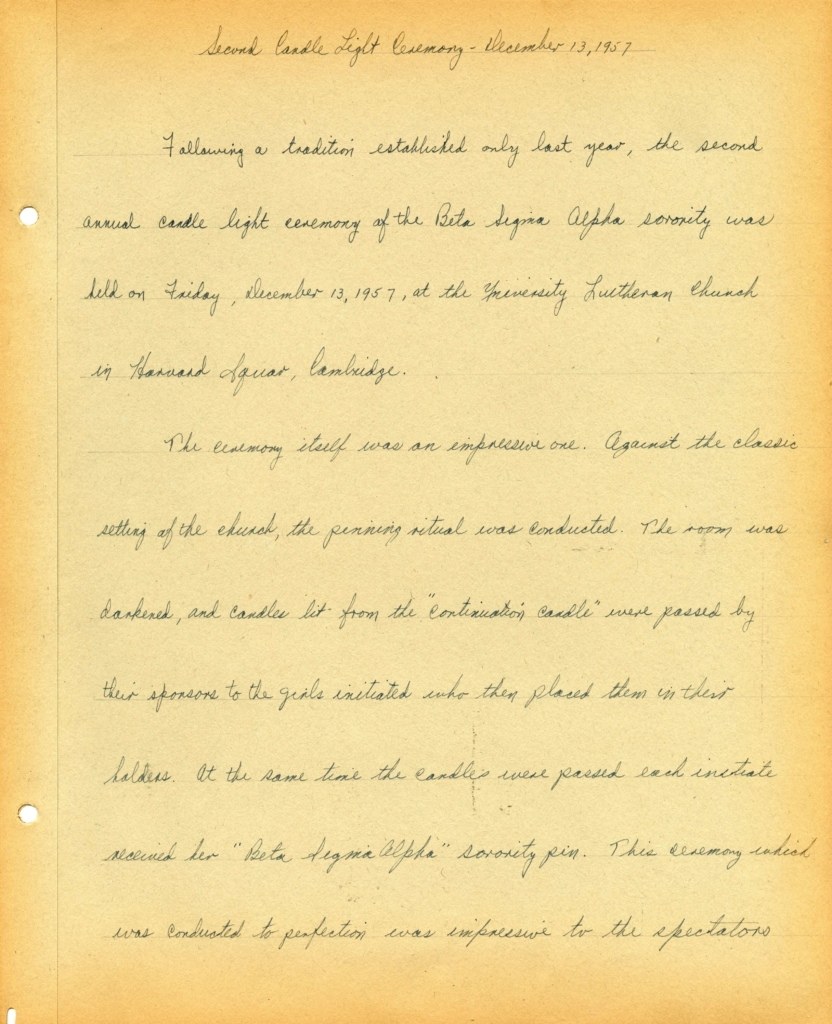 Second Candle Light Ceremony - December 13, 1957
Following a tradition established only last year, the second
annual candle light ceremony of the Beta Sigma Alpha sorority was
held on Friday, December 13, 1957, at the University Lutheran Church
in Harvard Squar, Cambridge.
The ceremony itself was an impressive one. Against the classic
setting of the church, the pinning ritual was conducted. The room was
darkened, and candles lit from the "continuation candle" were passed by
their sponsors to the girls initiated who then placed them in their
holders. At the same time the candles were passed each initiate
received her "Beta Sigma Alpha" sorority pin. This ceremony which
was conducted to perfection was impressive to the spectators